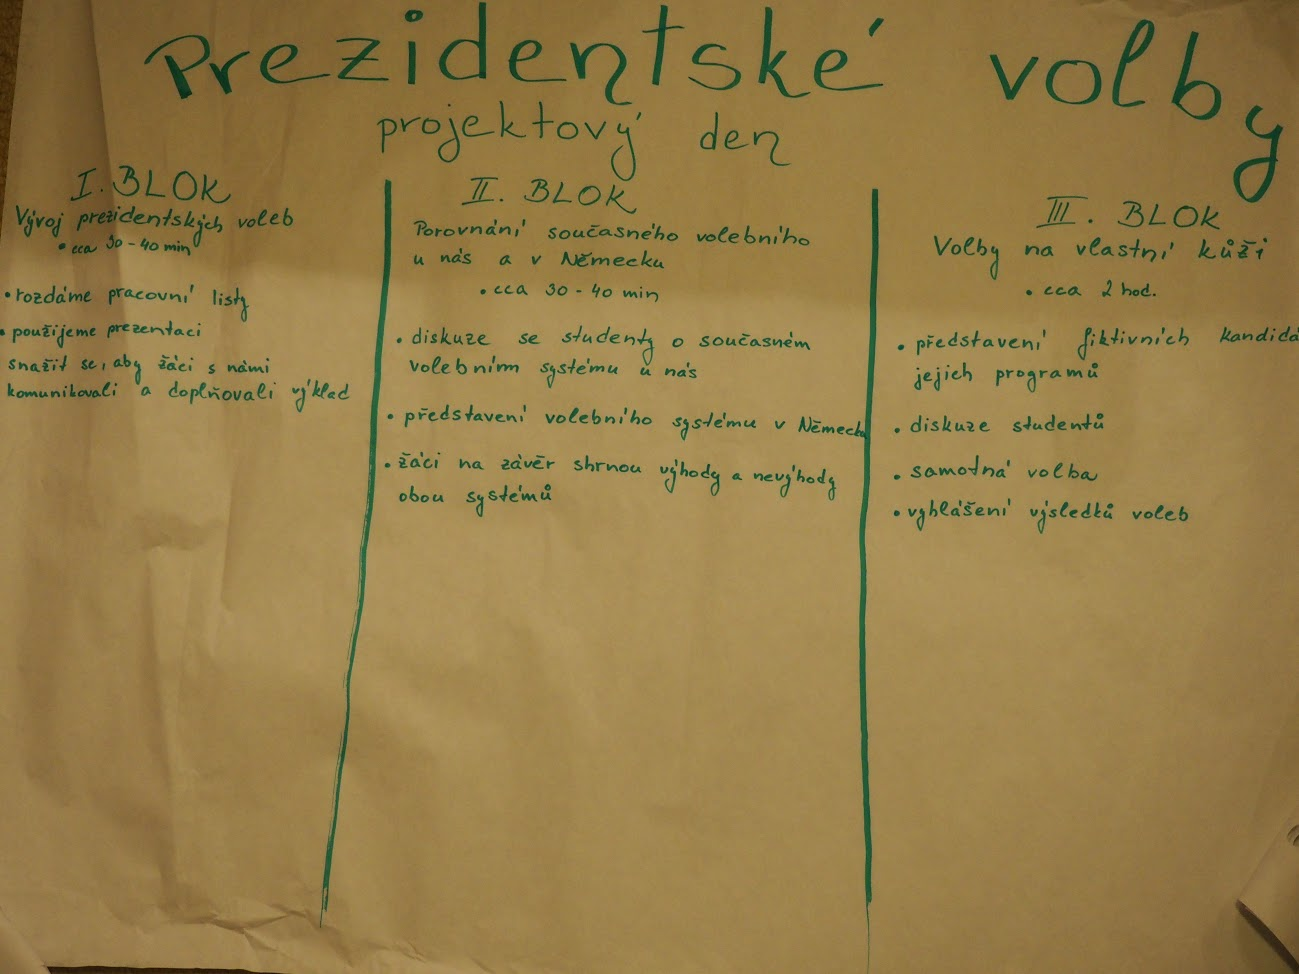 Prezidentské volby
projektový den
I. BLOK
Vývoj prezidentských voleb
• cca 30 - 40 min
• rozdáme pracovní listy
• použijeme prezentaci
snažit se, aby žáci s námi
komunikovali a doplňovali výklad
II. BLOK
Porovnání současného volebního
u nás a v Německu
• cca 30 - 40 min
• diskuze se studenty o současném
volebním systému u nás
• představení volebního systému v Německu
• žáci na závěr shrnou výhody a nevýhody
obou systémů
III. BLOK
Volby na vlastní kůži
• cca 2 hod.
• představení fiktivních kandidá
jejich programů
• diskuze studentů
• samotná volba
• vyhlášení výsledků voleb